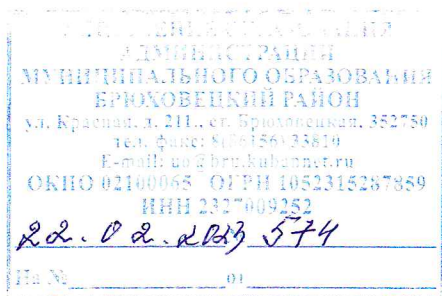 АДМИНИСТРАЦИИ
МУНИЦИПАЛЬНОГО ОБРАЗОВАНИЯ
БРЮХОВЕЦКИЙ РАЙОН
ул. Красная, д. 211., ст. Брюховецкая, 352750
тел. факс: 8(86156) 33810
E-mail: uo@bru.kubannet.ru
ОКПО 02100065 ОГРН 1052315287859
ИНН 2327009252
22.02.2023 574
На № от